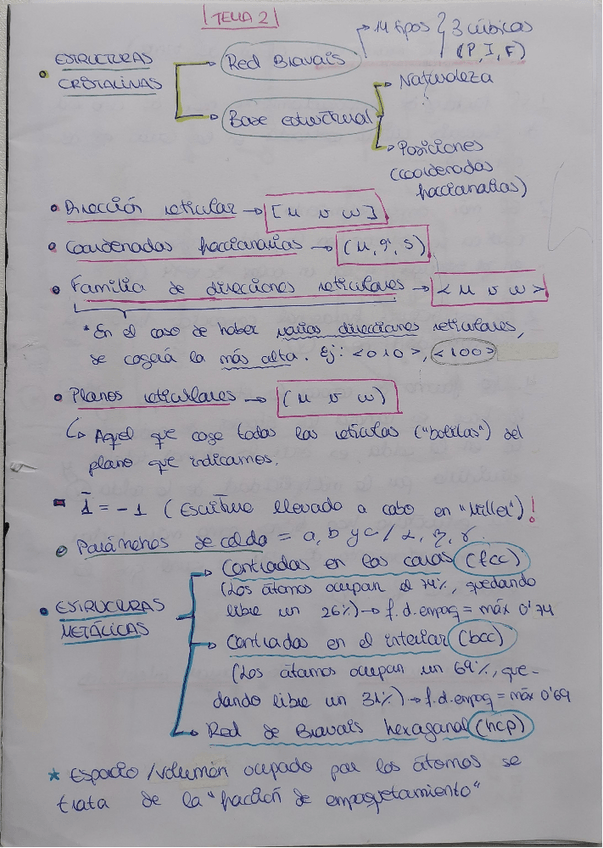 TEMA 2
ESTRUCTURAS
CRISTALINAS
Red Bravais
14 tipos
3 cúbicas
(P, I, F)
Base estructural
Naturaleza
Posiciones
(coordenadas
fraccionarias)
Dirección reticular → [u v w]
Coordenadas fraccionarias →
Familia de direcciones reticulares → <u v w>
*En el caso de haber varias direcciones reticulares,
se cogerá la más alta. Ej: <010>, <100>
Planos reticulares → (u v w)
↳ Aquel que coge todas las retículas ("bolitas") del
plano que indicamos.
1̄ = -1 (Escritura llevado a cabo en "Miller")!
Parámetros de celda = a, b y c /
ESTRUCTURAS
METÁLICAS
Centradas en las caras (fcc)
(Los átomos ocupan el 74%, quedando
libre un 26%) → f.d.empaq = máx 0'74
Centradas en el interior (bcc)
(Los átomos ocupan un 69%, que-
dando libre un 31%) → f.d.empaq = máx 0'69
Red de Bravais hexagonal (hcp)
* Espacio/volumen ocupado por los átomos se
trata de la "fracción de empaquetamiento"